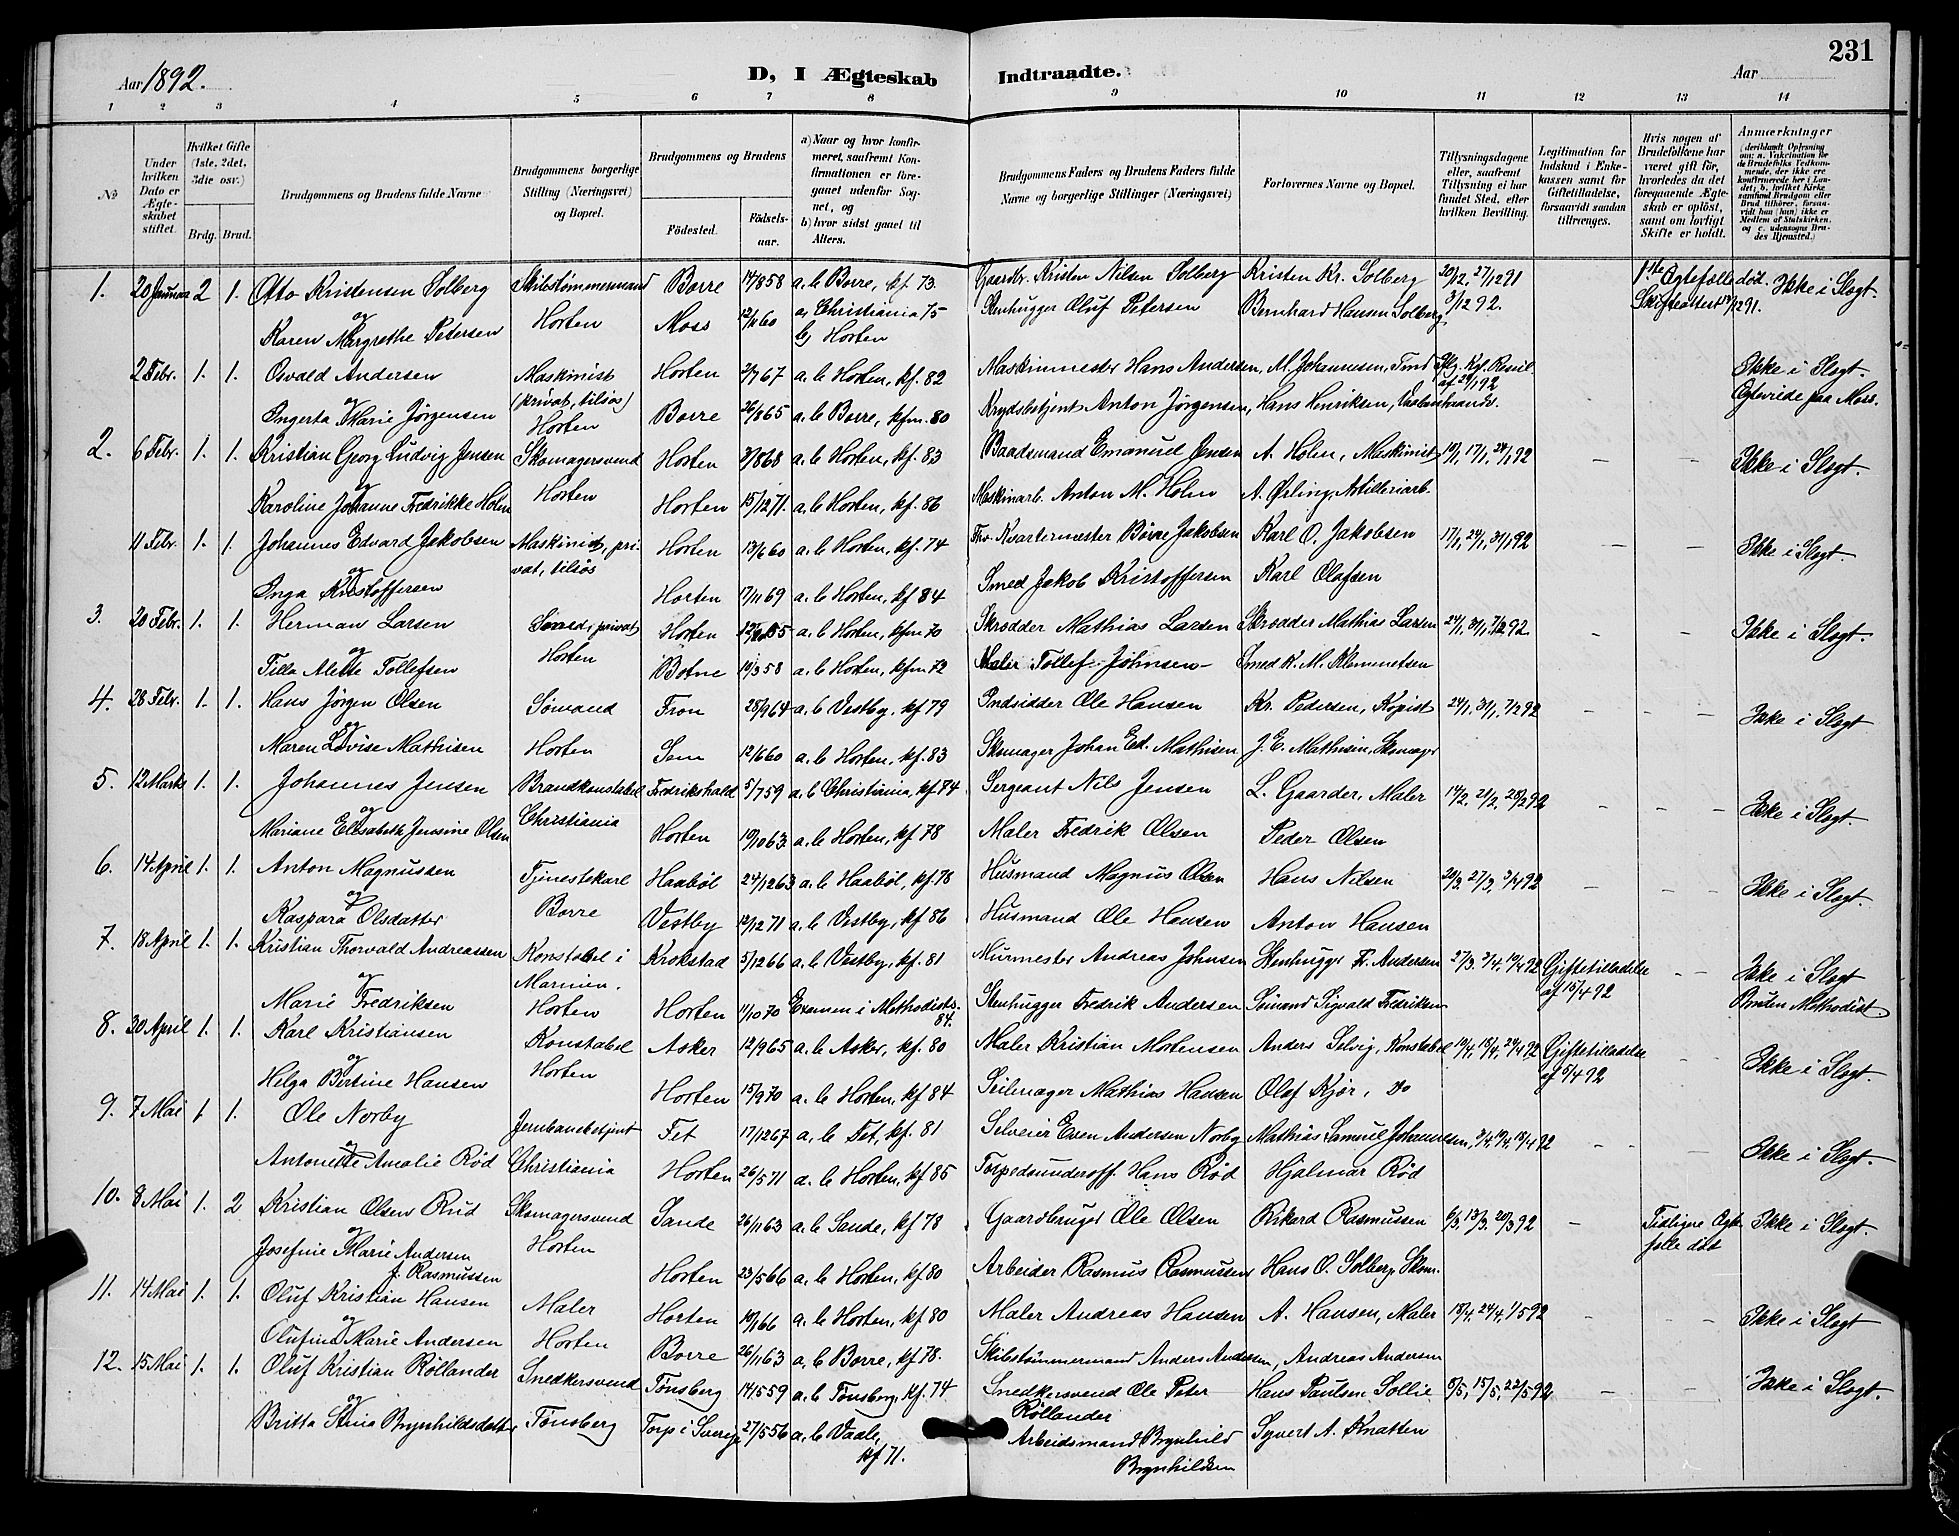 231
Aar 1892.
D, I Ægteskab Indtraadte.
Aar
1 2 3 4 5 6 7 8 9 10 11 12 13 14
№
Under hvilken Dato er Ægteskabet stiftet.
Hvilket Gifte (1ste, 2det, 3die osv.)
Brdg. Brud.
Brudgommens og Brudens fulde Navne
Brudgommens borgerlige Stilling (Næringsvei) og Bopæl.
Brudgommens og Brudens
Födested.
Födselsaar.
a) Naar og hvor konfirmeret, saafremt Konfirmationen er foregaaet udenfor Sognet, og
b) hvor sidst gaaet til Alters.
Brudgommens Faders og Brudens Faders fulde Navne og borgerlige Stillinger (Næringsvei)
Forlovernes Navne og Bopæl.
Tillysningsdagene eller, saafremt Tillysning ei har fundet Sted, efter hvilken Bevilling.
Legitimation for Indskud i Enkekassen samt for Giftetilladelse, forsaavidt saadan tiltrænges.
Hvis nogen af Brudefolkene har været gift för, hvorledes da det foregaaende Ægteskab er oplöst, samt om lovligt Skifte er holdt.
Anmærkninger
1. 20 Januar 2 1. Otto Kristensen Solberg Skibstømmermand Borre 14/8 58 a.b. Borre, kf. 73. Gaardbr. Kristen Nilsen Solberg Kristen Kr. Solberg 20/12, 27/12 91 1ste Ægtefælle død. Ikke i Slægt.
og Karen Margrethe Petersen Horten Moss 12/1 60 a, Christiania 75 b, Horten Stenhugger Oluf Petersen Bernhard Hansen Solberg 3/12 92. Skifteattest 14/12 91.
2 Febr. 1. 1. Osvald Andersen Maskinist (privat, tilsøs) Horten 2/7 67 a.b. Horten, kf. 82 Maskinmester Hans Andersen, M. Johannesen, Tmd Ikke i Slægt.
og Ingerta Marie Jørgensen Horten Borre 26/8 65 a.b. Borre, kfm. 80 Krydsbetjent Anton Jørgensen, Hans Henriksen, Ægtevide paa Moss.
2. 6 Febr. 1. 1. Kristian Georg Ludvig Jensen Skomagersvend Horten 3/8 68 a.b. Horten, kf. 83 Baadsmand Emanuel Jensen A. Holen, Maskinist 10/1, 17/1, 24/1 92 — — Ikke i Slægt.
og Karoline Johanne Fredrikke Holm Horten Horten 15/12 71. a.b. Horten, kf. 86 Maskinarb. Anton M. Holm A. Ørling, Artilleriarb.
11 Febr. 1. 1. Johannes Edvard Jakobsen Maskinist, privat, tilsøs Horten 13/6 60 a.b. Horten, kf. 74 Thv. Kvartermester Børre Jakobsen Karl O. Jakobsen 17/1, 24/1, 31/1 92 — — Ikke i Slægt.
og Inga Kristoffersen Horten 7/11 69 a.b. Horten, kf 84 Smed Jakob Kristoffersen Karl Olafsen
3. 20 Febr. 1. 1. Herman Larsen Smed, privat Horten 55 a.b. Horten, kfm. 70 Skrædder Mathias Larsen Skrædder Mathias Larsen 24/1, 31/1, 7/2 92. — — Ikke i Slægt.
og Tilla Alette Tollefsen Horten Botne 10/3 58 a.b. Horten, kfm. 72 Maler Tollef Johnsen Smed K. M. Klemmetsen
4. 28 Febr. 1. 1. Hans Jørgen Olsen Sømand Tron 28/9 64 a.b. Vestby, kf 79 Indsidder Ole Hansen Kr. Pedersen, Kopist 24/1, 31/1, 7/2 92 — — Ikke i Slægt.
og Maren Lovise Mathisen Horten Sem 12/6 60 a.b. Horten, kf. 83 Skomager Johan Ed. Mathisen J. E. Mathisen, Skomager
5. 12 Marts 1. 1. Johannes Jensen Brandkonstabel Fredrikshald 5/7 59 a.b. Christiania, kf. 74 Sergeant Nils Jensen L. Gaarder, Maler 14/2, 21/2, 28/2 92 — — Ikke i Slægt.
og Mariane Elisabeth Jensine Olsen Christiania Horten 10/10 63. a.b. Horten, kf. 78 Maler Fredrik Olsen Peder Olsen
6. 14 April 1. 1. Anton Magnussen Tjenestekarl Haabøl 24/12 63 a.b. Haabøl, kf. 78 Husmand Magnus Olsen Hans Nilsen 20/3, 27/3, 3/4 92 — — Ikke i Slægt.
og Kaspara Olsdatter Borre Vestby 12/12 71 a.b. Vestby, kf. 86 Husmand Ole Hansen Anton Hansen
7. 18 April 1. 1. Kristian Thorvald Andreassen Konstabel i Marinen. Krokstad 5/12 66 a.b. Vestby, kf. 81 Murmester Andreas Johnsen Stenhugger Fr. Andersen 27/3, 3/4, 10/4 92 Giftetilladelse af 15/4 92 — Ikke i Slægt
og Marie Fredriksen Horten Horten 11/10 70 Examen i Methodists. 84. Stenhugger Fredrik Andersen Sømand Sigvald Fredriksen Bruden Methodist.
8. 30 April 1. 1. Karl Kristiansen Konstabel Asker 12/9 65 a.b. Asker, kf. 80 Maler Kristian Mortensen Anders Selvig, Konstabel 10/4, 18/4, 24/4 92 Giftetilladelse af 5/4 92 — Ikke i Slægt.
og Helga Bertine Hansen Horten Horten 15/9 70 a.b. Horten, kf. 84 Seilmager Mathias Hansen Olaf Kjør, Do
9. 7 Mai 1 1. Ole Norby Jernbanebetjent Fet 17/12 67 a.b. Fet, kf. 81 Selveier Even Andersen Norby Mathias Samuel Johannesen, 3/4, 10/4, 18/4 92 — — Ikke i Slægt.
og Antonette Amalie Rød Christiania Horten 26/5 71 a.b. Horten, kf 85 Torpedounderoff. Hans Rød Hjalmar Rød
10. 8 Mai 1. 2 Kristian Olsen Rud Skomagersvend Sande 26/11 63 a.b. Sande, kf 78 Gaardbruger Ole Olsen Rikard Rasmussen 6/3, 13/3, 20/3 92 — Tidligere Ægtefælle død Ikke i Slægt.
og Josefine Marie Andersen f. Rasmussen Horten Horten 23/5 66 a.b. Horten, kf 80 Arbeider Rasmus Rasmussen Hans O. Solberg, Skom.
11. 14 Mai 1. 1. Oluf Kristian Hansen Maler Horten 10/1 66 a.b. Horten, kf 80 Maler Andreas Hansen A. Hansen, Maler 18/4, 24/4, 1/5 92 — — Ikke i Slægt
og Olufine Marie Andersen Horten Borre 26/11 63 a.b. Borre, kf 78. Skibstømmermand Anders Andersen, Andreas Andersen
12. 15 Mai 1. 1. Oluf Kristian Røllander Snedkersvend Tønsberg 14/5 59 a.b. Tønsberg, kf. 74 Snedkersvend Ole Peter Røllander Hans Paulsen Sollie 8/5, 15/5, 22/5 92 — — Ikke i Slægt.
og Britta Stina Brynhildsdatter Tønsberg Torp i Sverige 27/5 56 a.b. Vaale, kf 71. Arbeidsmand Brynhild Brynhildsen Syvert A. Knatten